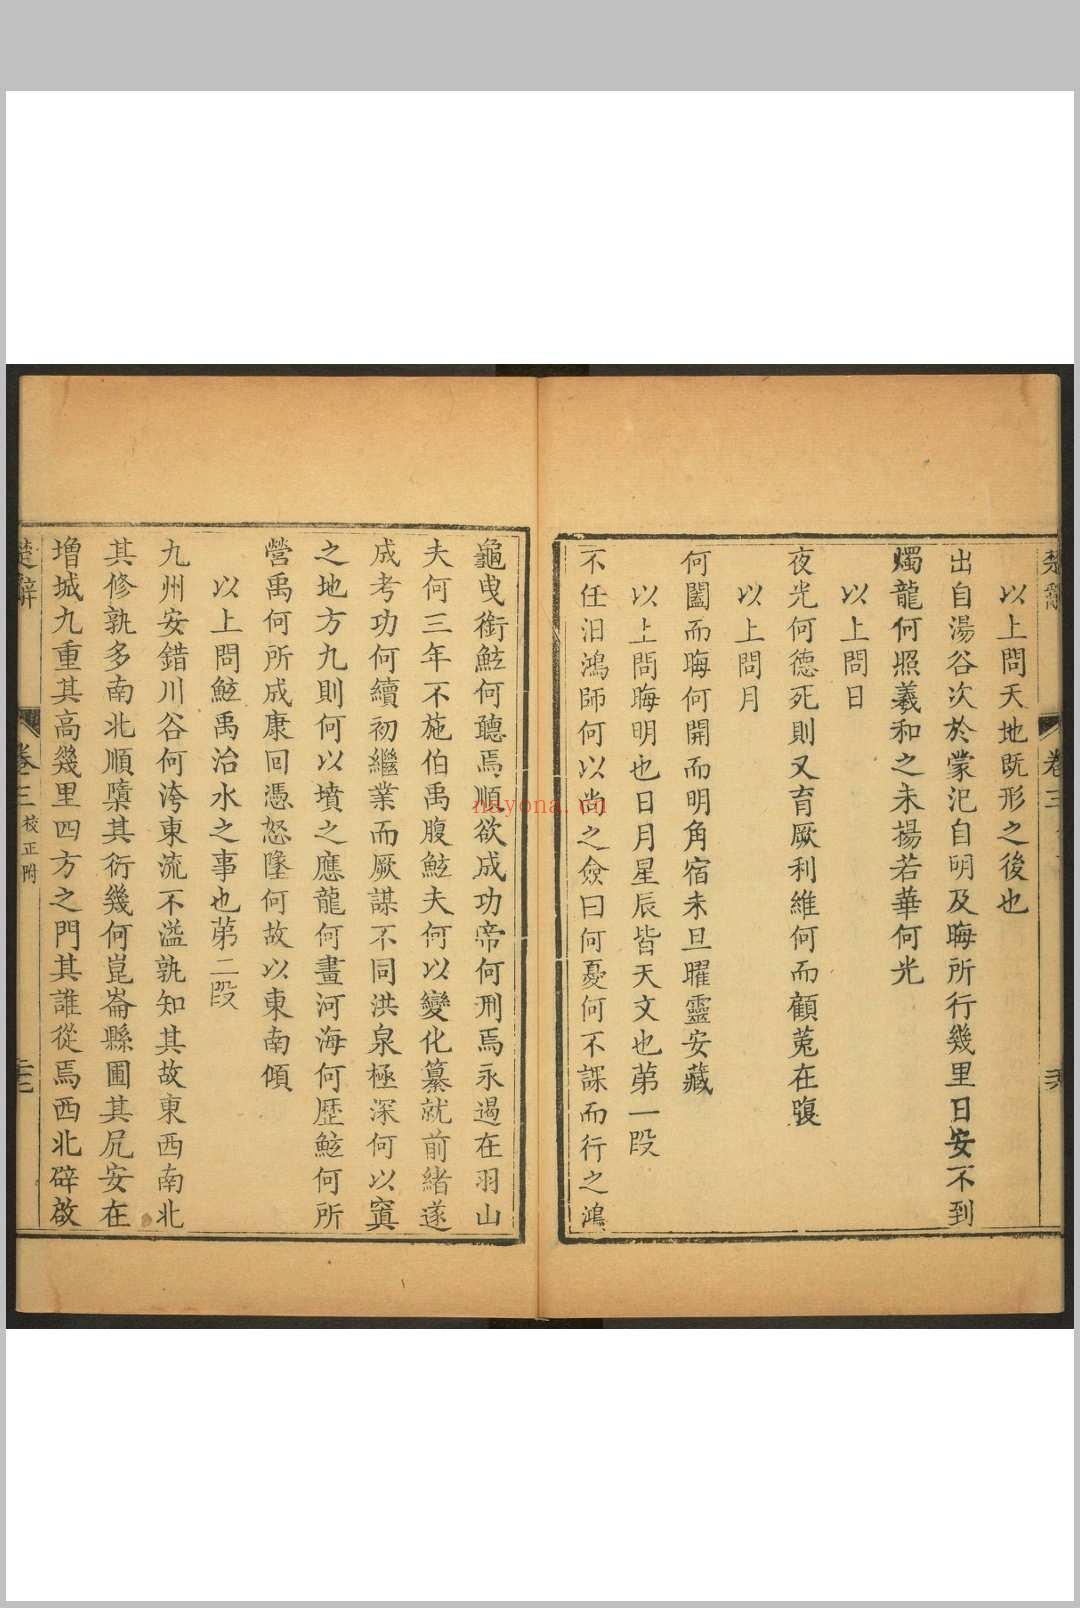 以上問天地既形之後也
出自湯谷次於蒙汜自明及晦所行幾里日安不到
燭龍何照羲和之未揚若華何光
以上問日
夜光何德死則又育厥利維何而顧菟在腹
以上問月
何闔而晦何開而明角宿未旦曜靈安藏
以上問晦明也日月星辰皆天文也第一段
不任汨鴻師何以尚之僉曰何憂何不課而行之鴻
龜曳銜鮌何聽焉順欲成功帝何刑焉永遏在羽山
夫何三年不施伯禹腹鮌夫何以變化纂就前緒遂
成考功何續初繼業而厥謀不同洪泉極深何以窴
之地方九則何以墳之應龍何畫河海何歷鮌何所
營禹何所成康回憑怒墬何故以東南傾
以上問鮌禹治水之事也第二段
九州安錯川谷何洿東流不溢孰知其故東西南北
其修孰多南北順隳其衍幾何崑崙縣圃其凥安在
增城九重其高幾里四方之門其誰從焉西北辟啟
楚辭 卷三 校正附
nayona.cn